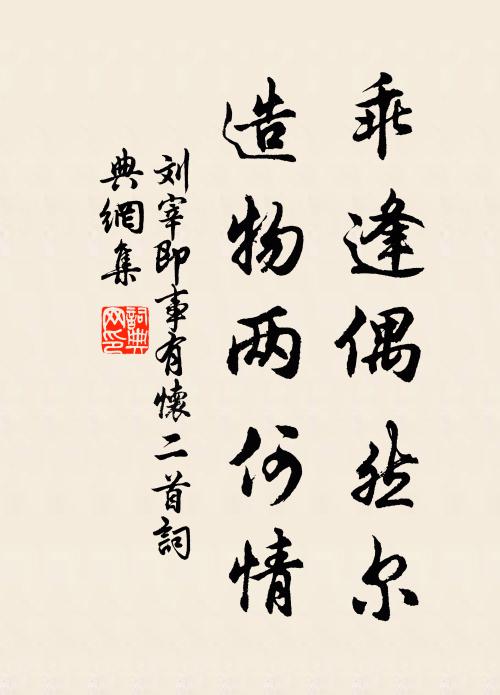 乖逢偶然尔
造物两何情
刘宰即事有懷二首詞
典網集
詞典网印